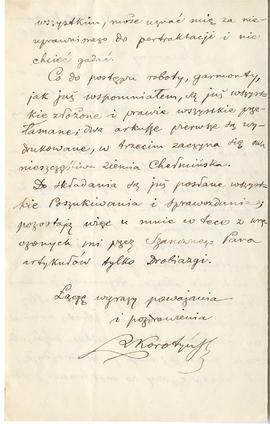 wszystkim, może uznać mię za nie-
uprawnionego do pertraktacji i nie
chcieć gadać.
Co do postępu roboty, garmonty,
jak już wspomniałem, są już wszyst-
kie złożone i prawie wszystkie prze-
łamane; dwa arkusze pierwsze są wy-
drukowane, w trzecim zaczyna się
nieszczęśliwa ziemia Chełmińska.
Do składania są już posłane wszyst-
kie Poszukiwania i Sprawozdania,
pozostają więc u mnie w tece z wrę-
czonych mi przez Szanownego Pana
artykułów tylko Drobiazgi.
Łączę wyrazy poważania
i pozdrowienia